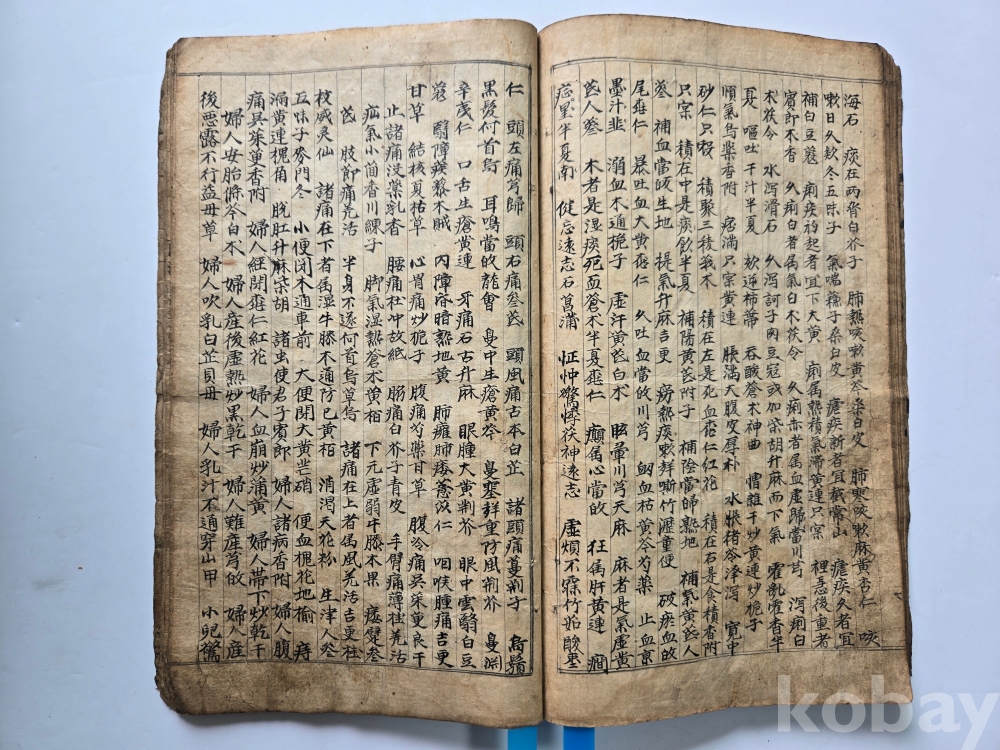 海石　痰在兩脅白芥子　肺熱咳嗽黃芩桑白皮　肺寒咳嗽麻黃杏仁　咳
嗽日久款冬五味子　氣喘蘇子桑白皮　瘧疾新者宜截常山　瘧疾久者宜
補白豆蔲　痢疾初起者宜下大黃　痢属熱積氣滞黃連只宗　裡急後重者
賓郎木香　久痢白者属氣白木茯令　久痢赤者属血虛歸當川芎　泻痢白
木茯令　水泻滑石　久泻訶子肉豆寇或加柴胡升麻而下氣　霍亂藿香半
夏　嘔吐干汁半夏　欬逆柿蒂　吞酸蒼木神曲　嘈雜干炒黃連炒梔子
順氣烏藥香附　痞滿只宗黃連　脹滿大腹皮厚朴　水脹猪苓泽泻　寬中
砂仁只殼　積聚三棱莪木　積在左是死血桃仁紅花　積在石是食積香附
只宗　積在中是痰飮半夏　補陽黃芪附子　補陰當帰熟地　補氣黃芪人
蔘　補血當皈生地　提氣升麻吉更　痨熱痰嗽竹瀝童便　破瘀血皈
尾桃仁　暴吐血大黃桃仁　久吐血當皈川芎　衂血枯黃芩芍藥　止血京
墨汁韭　溺血木通梔子　虛汗黃芪白木　眩暈川芎天麻　麻者是氣虛黃
芪人蔘　木者是湿痰死血蒼木半夏桃仁　癲属心當皈　狂属肝黃連　癎
星半夏南　健忘遠志石菖蒲　怔忡驚悸茯神遠志　虛煩不寐竹茹酸棗
仁　頭左痛芎歸　頭右痛蔘芪　頭風痛古本白芷　諸頭痛蔓荊子　烏鬚
黑髮何首烏　耳鳴當皈龍會　鼻中生瘡黃芩　鼻塞防風荊芥　鼻淵
辛夷仁　口舌生瘡黃連　牙痛石古升麻　眼腫大黃荊芥　眼中雲翳白豆
蔲　翳障蒺藜木賊　內障昏暗熟地黃　肺癰肺痿薏苡仁　咽喉腫痛吉更
甘草　結核夏枯草　心胃痛炒梔子　腹痛芍藥甘草　腹冷痛吳茱萸良干
止諸痛沒藥乳香　腰痛杜冲故紙　脇痛白芥子青皮　手臂痛薄桂羌活
疝氣小茴香川練子　脚氣湿熱蒼木黃栢　下元虛弱牛膝木果　痿躄叅
芪　肢節痛羌活　半身不遂何首烏草烏　諸痛在上者属風羌活吉更杜
枝威灵仙　諸痛在下者属湿牛膝木通防已黃栢　消渇天花粉　生津人叅
五味子麥門冬　小便閉木通車前　大便閉大黃芒硝　便血槐花地榆　痔
漏黃連槐角　脫肛升麻柴胡　諸虫使君子賓郎　婦人諸病香附　婦人腹
痛吳茱萸香附　婦人経閉桃仁紅花　婦人血崩炒蒲黃　婦人帶下炒乾干
婦人安胎條芩白木　婦人産後虛熱炒黑乾干　婦人難産芎皈　婦人産
後惡露不行益母草　婦人吹乳白芷貝母　婦人乳汁不通穿山甲　小兒
kobay